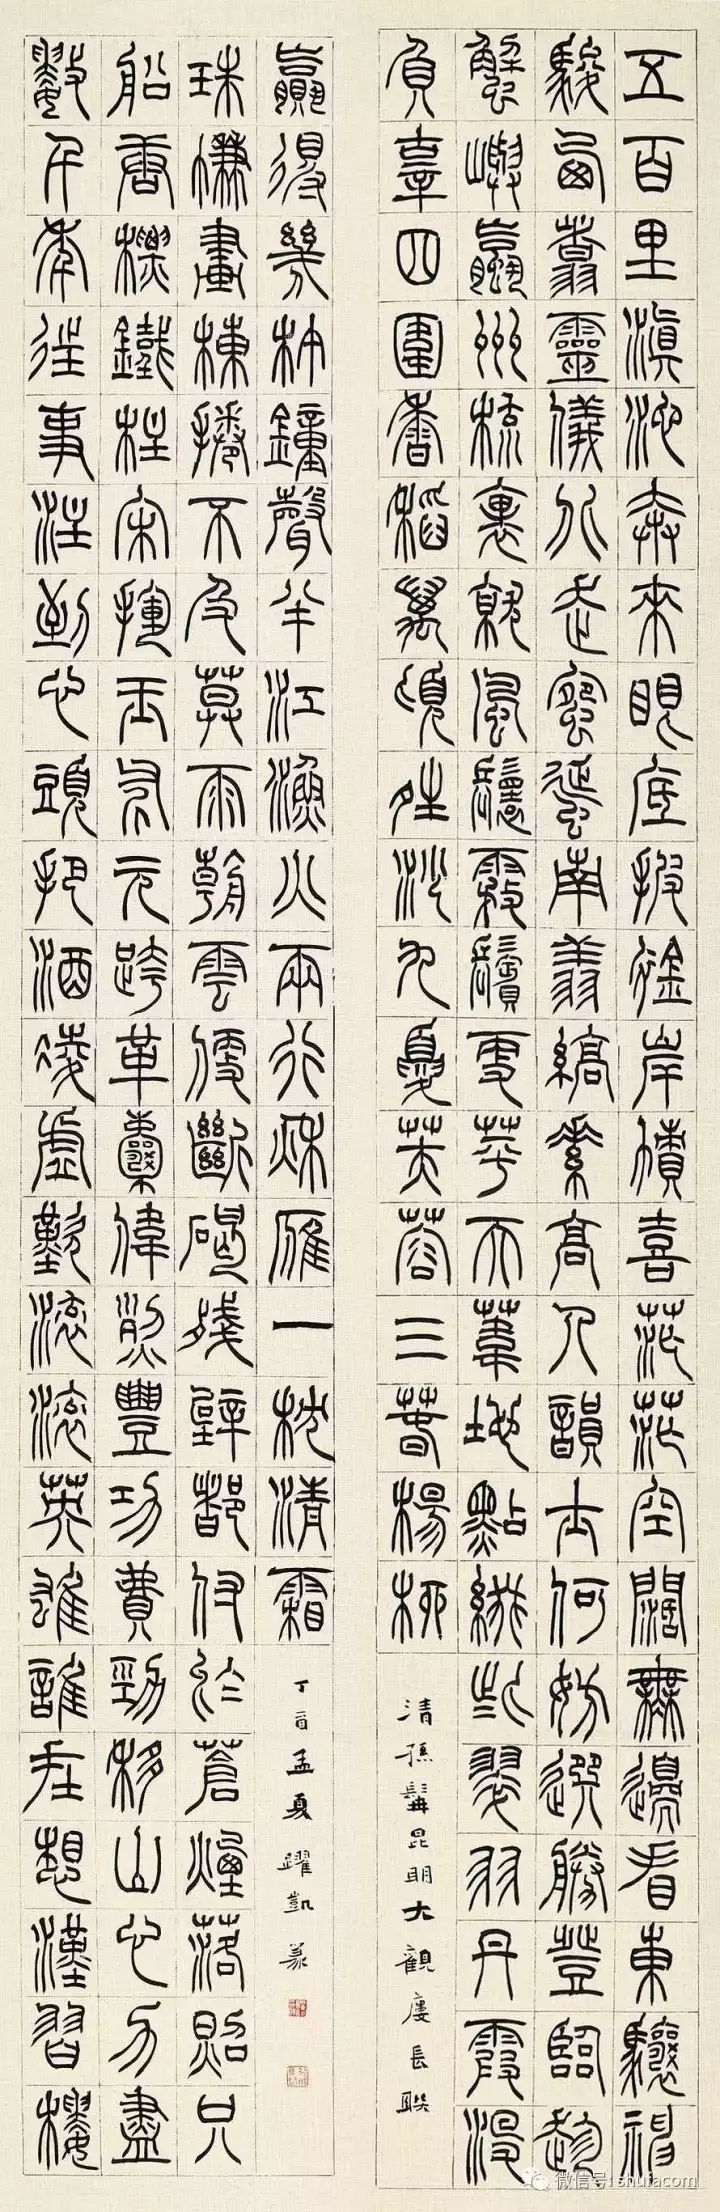 五百里滇池奔來眼底披襟岸幘喜茫茫空闊無邊看東驤神
駿西翥靈儀北走蜿蜒南翔縞素高人韻士何妨選勝登臨趁
蟹嶼蠃州梳裹就風鬟霧鬢更苹天葦地點綴些翠羽丹霞沒
負辜四圍香稻萬頃晴沙九夏芙蓉三春楊柳
清孫髯昆明大觀樓長聯
數千年往事注到心頭把酒凌虛歎滾滾英雄誰在想漢習樓
船唐標鐵柱宋揮玉斧元跨革囊偉烈豐功費勁移山心力盡
珠簾畫棟捲不及莫雨朝雲便斷碣殘碑都付於蒼煙落照只
贏得幾杵鐘聲半江漁火兩行秋雁一枕清霜
丁酉孟夏躍凱篆
微信号: shufacom